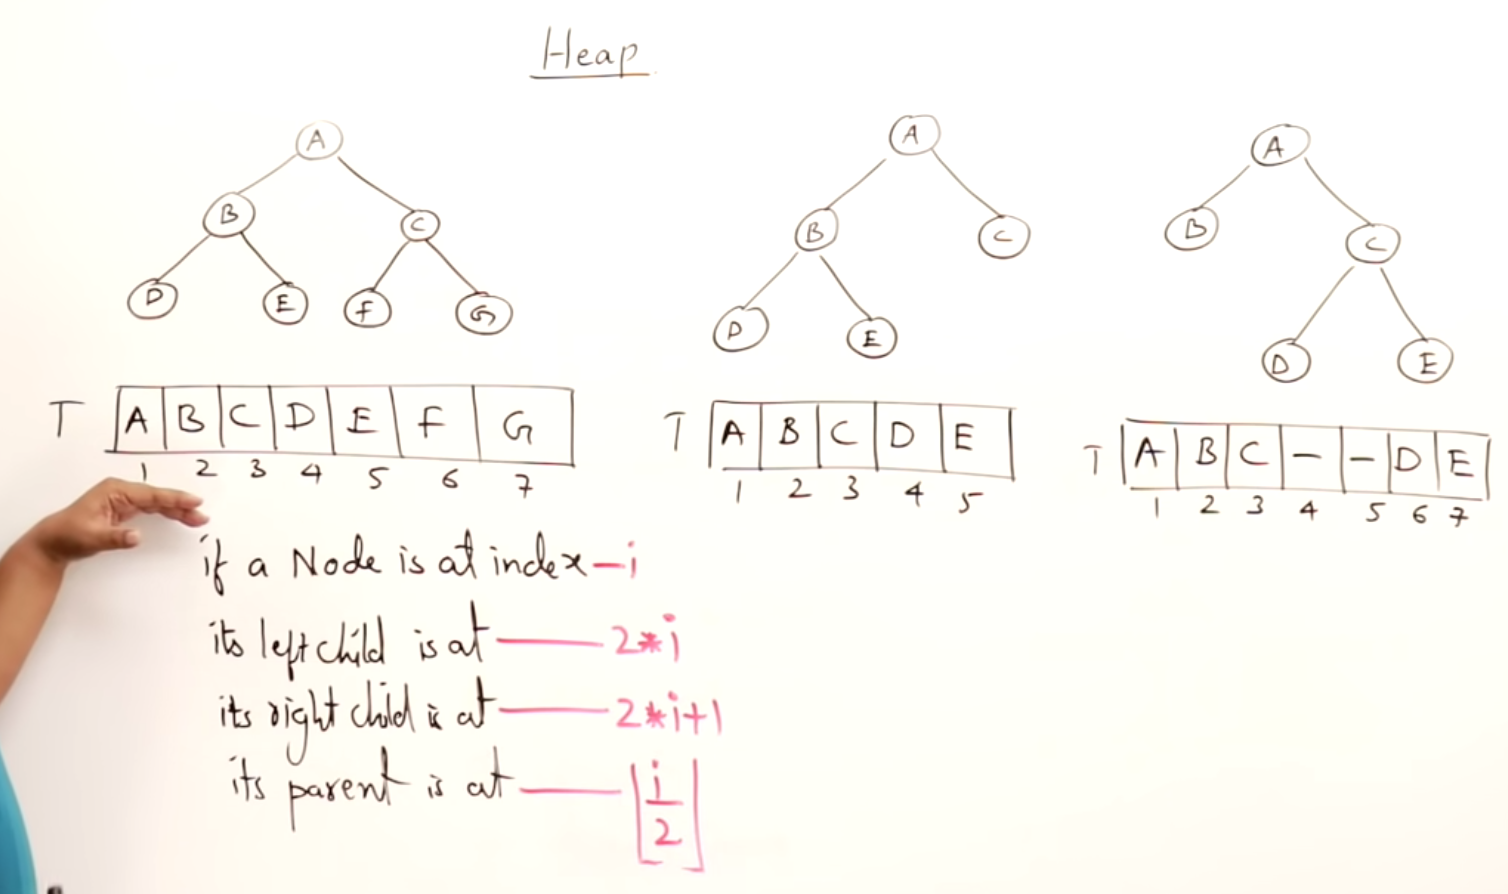 Heap
A
B C
D E F G
T A B C D E F G
1 2 3 4 5 6 7
A
B C
D E
T A B C D E
1 2 3 4 5
A
B C
D E
T A B C - - D E
1 2 3 4 5 6 7
if a Node is at index - i
its left child is at — 2*i
its right child is at — 2*i+1
its parent is at — ⌊i/2⌋